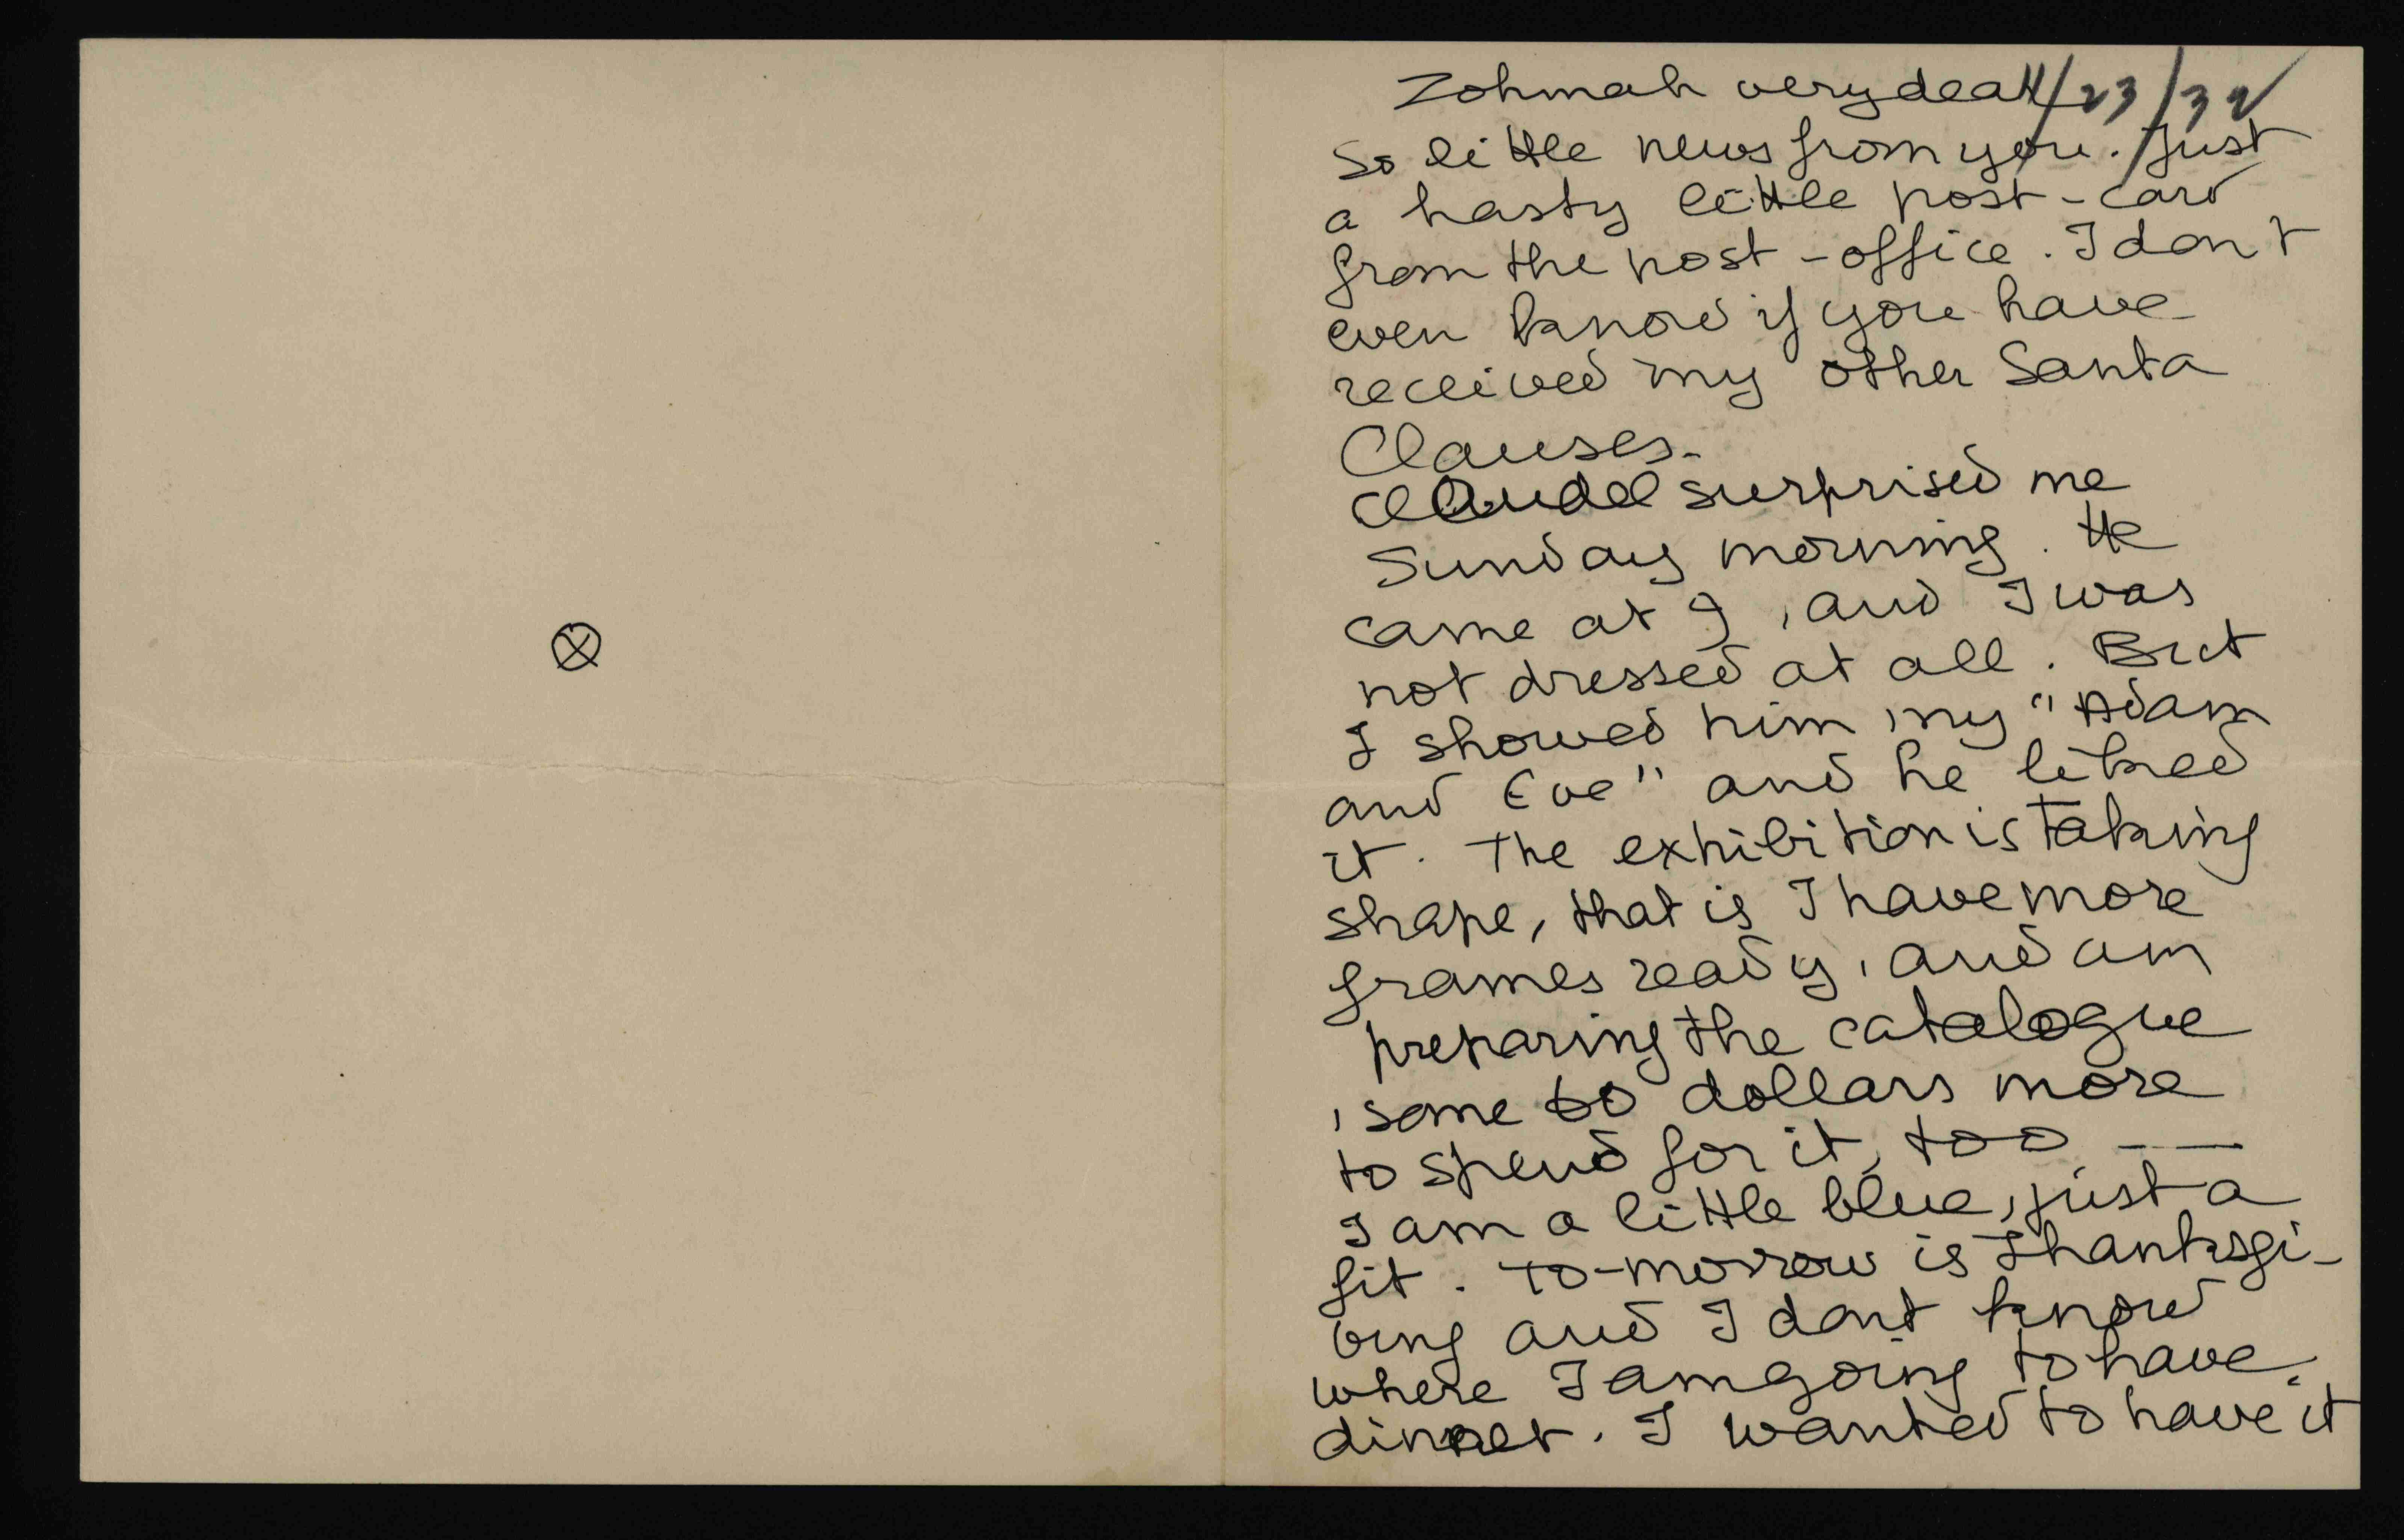 Zohmah very dear 11/23/32
So little news from you. Just
a hasty little post-card
from the post-office. I dont
even know if you have
received my other Santa
Clauses.
Claudel surprised me
Sunday morning. He
came at 9, and I was
not dressed at all. But
I showed him my "Adam
and Eve" and he liked
it. The exhibition is taking
shape, that is I have more
frames ready, and am
preparing the catalogue
, some 60 dollars more
to spend for it, too ——
I am a little blue, just a
fit. To-morrow is Thanksgi-
ving and I dont know
where I am going to have
dinner. I wanted to have it